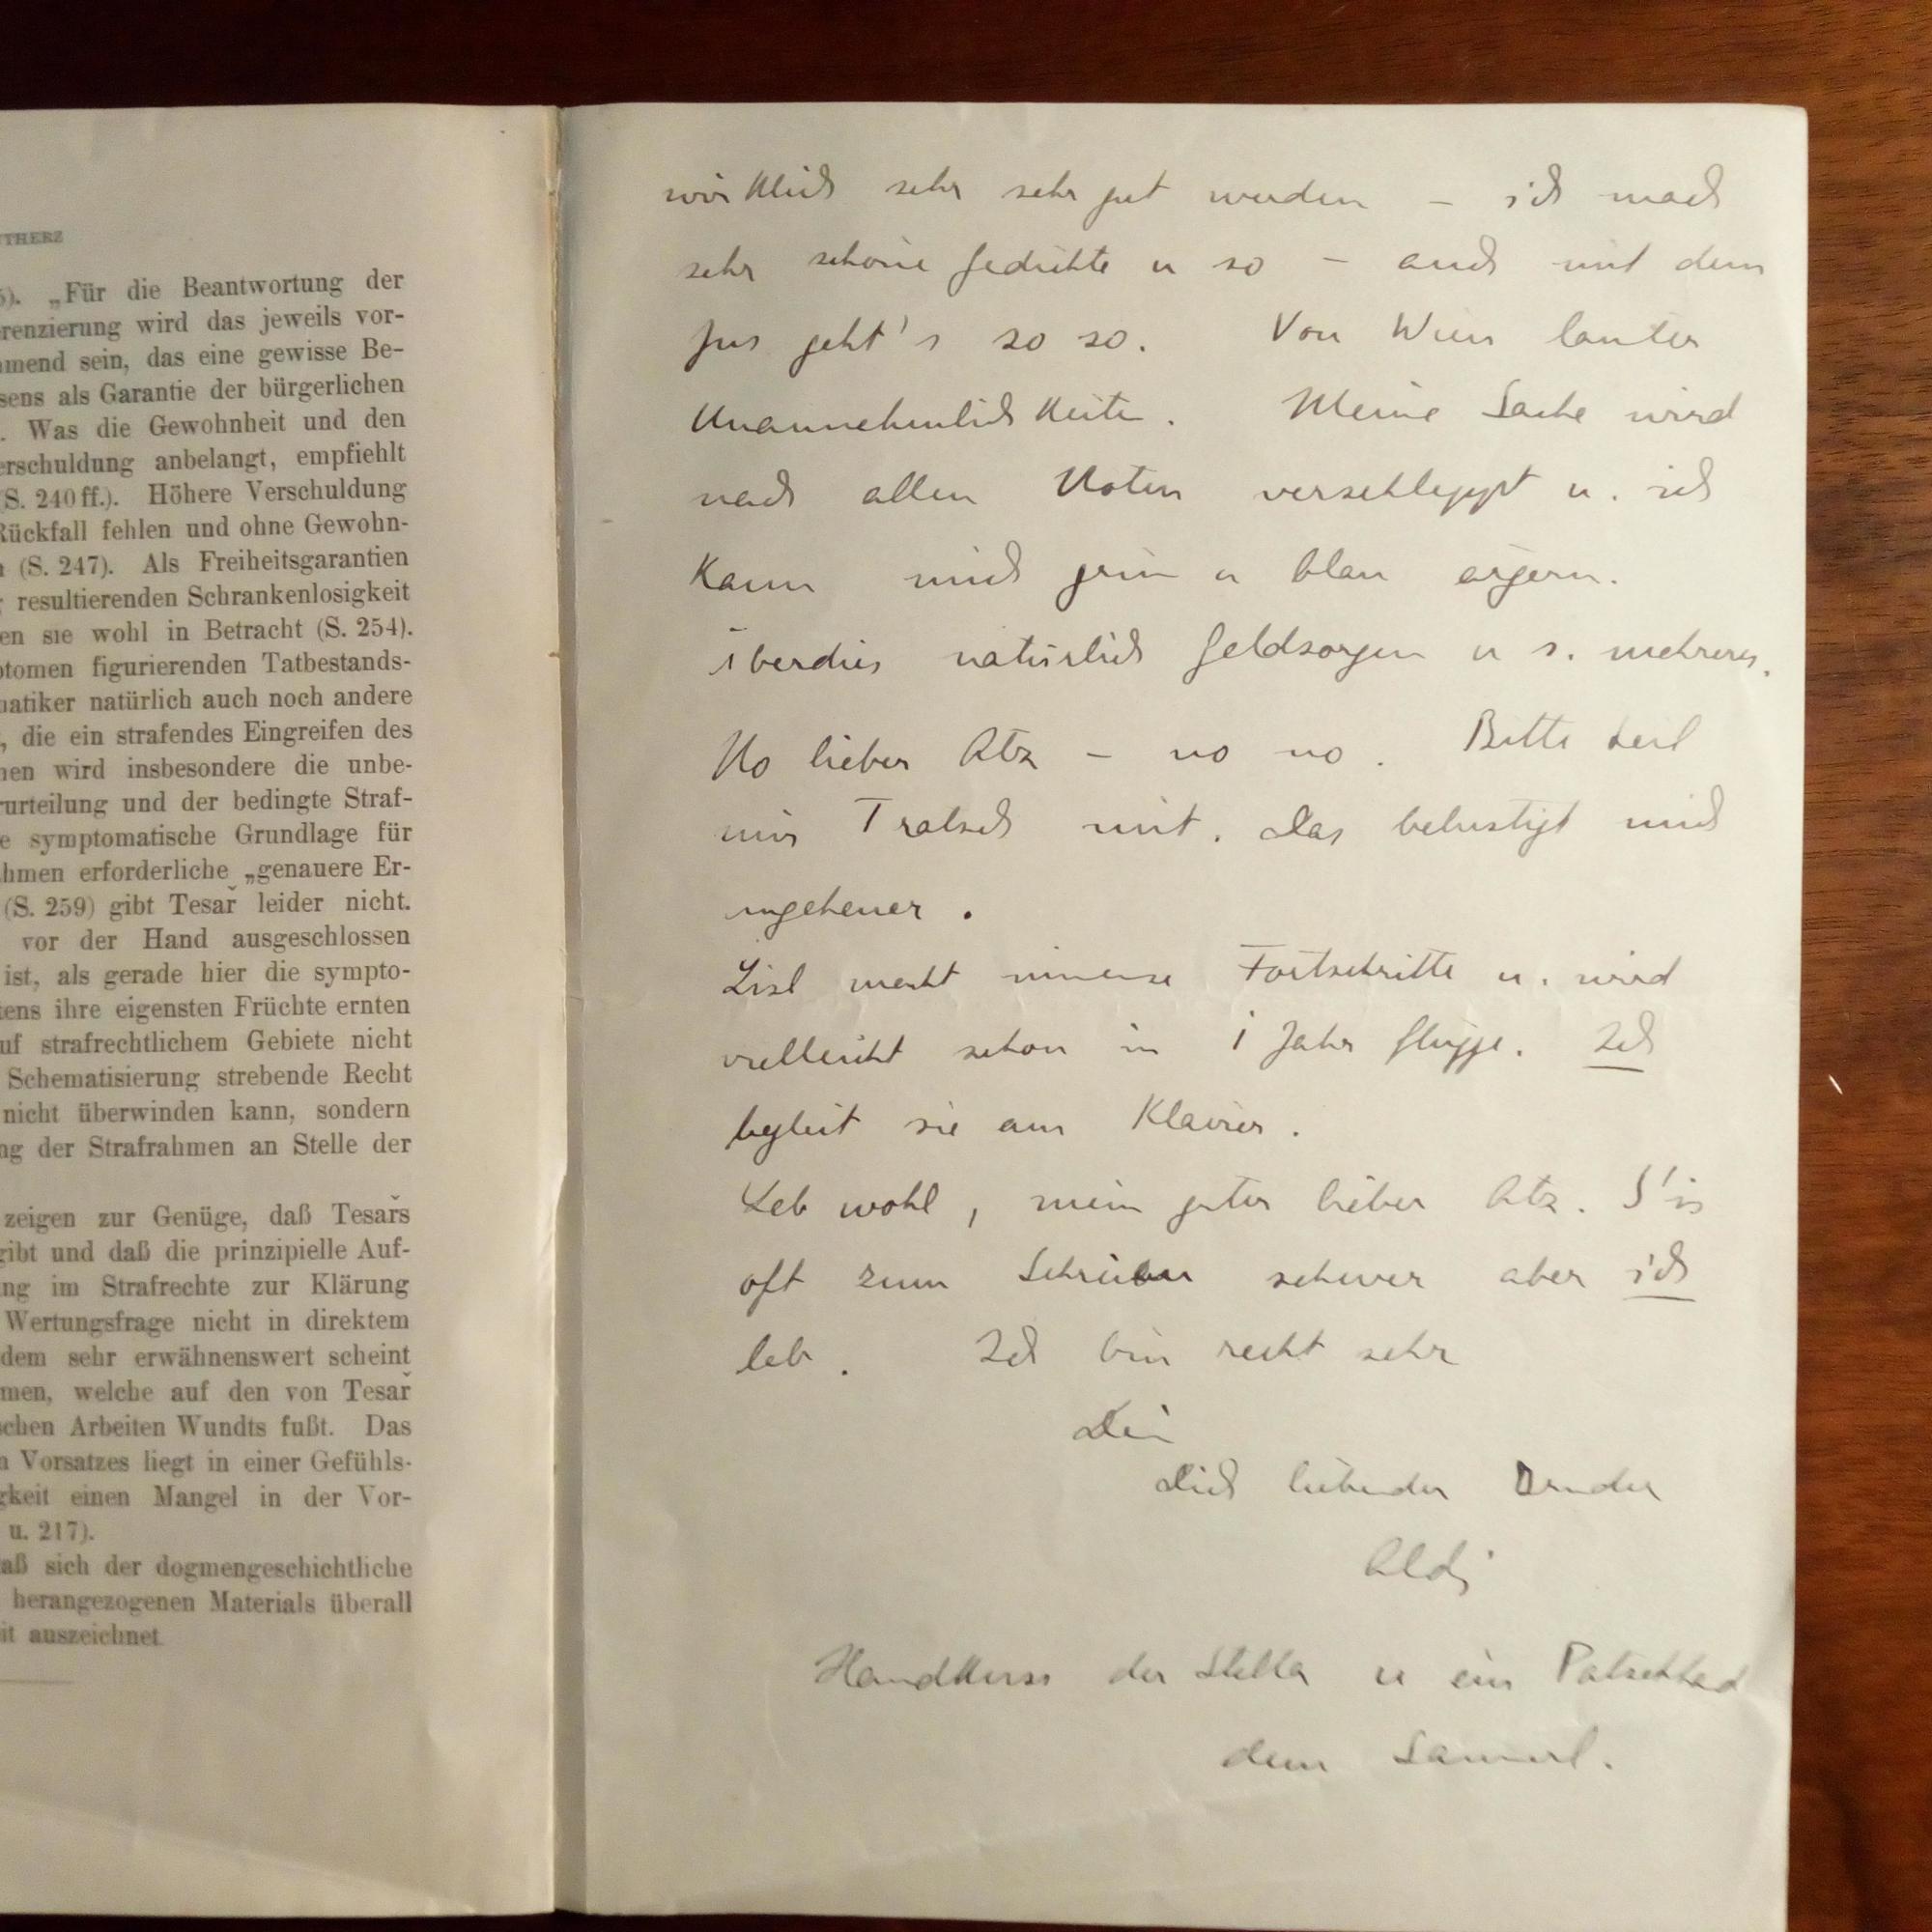 THERZ
5). „Für die Beantwortung der
erenzierung wird das jeweils vor-
mmend sein, das eine gewisse Be-
sens als Garantie der bürgerlichen
. Was die Gewohnheit und den
erschuldung anbelangt, empfiehlt
(S. 240 ff.). Höhere Verschuldung
Rückfall fehlen und ohne Gewohn-
n (S. 247). Als Freiheitsgarantien
g resultierenden Schrankenlosigkeit
en sie wohl in Betracht (S. 254).
ptomen figurierenden Tatbestands-
matiker natürlich auch noch andere
, die ein strafendes Eingreifen des
nen wird insbesondere die unbe-
rurteilung und der bedingte Straf-
e symptomatische Grundlage für
hmen erforderliche „genauere Er-
(S. 259) gibt Tesař leider nicht.
vor der Hand ausgeschlossen
ist, als gerade hier die sympto-
tens ihre eigensten Früchte ernten
uf strafrechtlichem Gebiete nicht
Schematisierung strebende Recht
nicht überwinden kann, sondern
ng der Strafrahmen an Stelle der
zeigen zur Genüge, daß Tesařs
gibt und daß die prinzipielle Auf-
ng im Strafrechte zur Klärung
Wertungsfrage nicht in direktem
dem sehr erwähnenswert scheint
men, welche auf den von Tesař
schen Arbeiten Wundts fußt. Das
n Vorsatzes liegt in einer Gefühls-
gkeit einen Mangel in der Vor-
u. 217).
aß sich der dogmengeschichtliche
herangezogenen Materials überall
it auszeichnet
wirklich sehr sehr gut werden – ich mach
sehr schöne Gedichte u so – auch mit dem
Jus geht's so so. Von Wien lauter
Unannehmlichkeiten. Meine Sache wird
nach allen Noten verschleppt u. ich
kann mich grün u blau ärgern.
überdies natürlich Geldsorgen u s. mehreres.
No lieber Atz – no no. Bitte teil
mir Tratsch mit. Das belustigt mich
ungeheuer.
Lisl macht immense Fortschritte u. wird
vielleicht schon in 1 Jahr flügge. Ich
begleit sie am Klavier.
Leb wohl, mein guter lieber Atz. S'is
oft zum Schreiben schwer aber ich
leb. Ich bin recht sehr
Dein
Dich liebender Bruder
Aldi
Handkuss der Stella u ein Patschhad
dem Samerl.